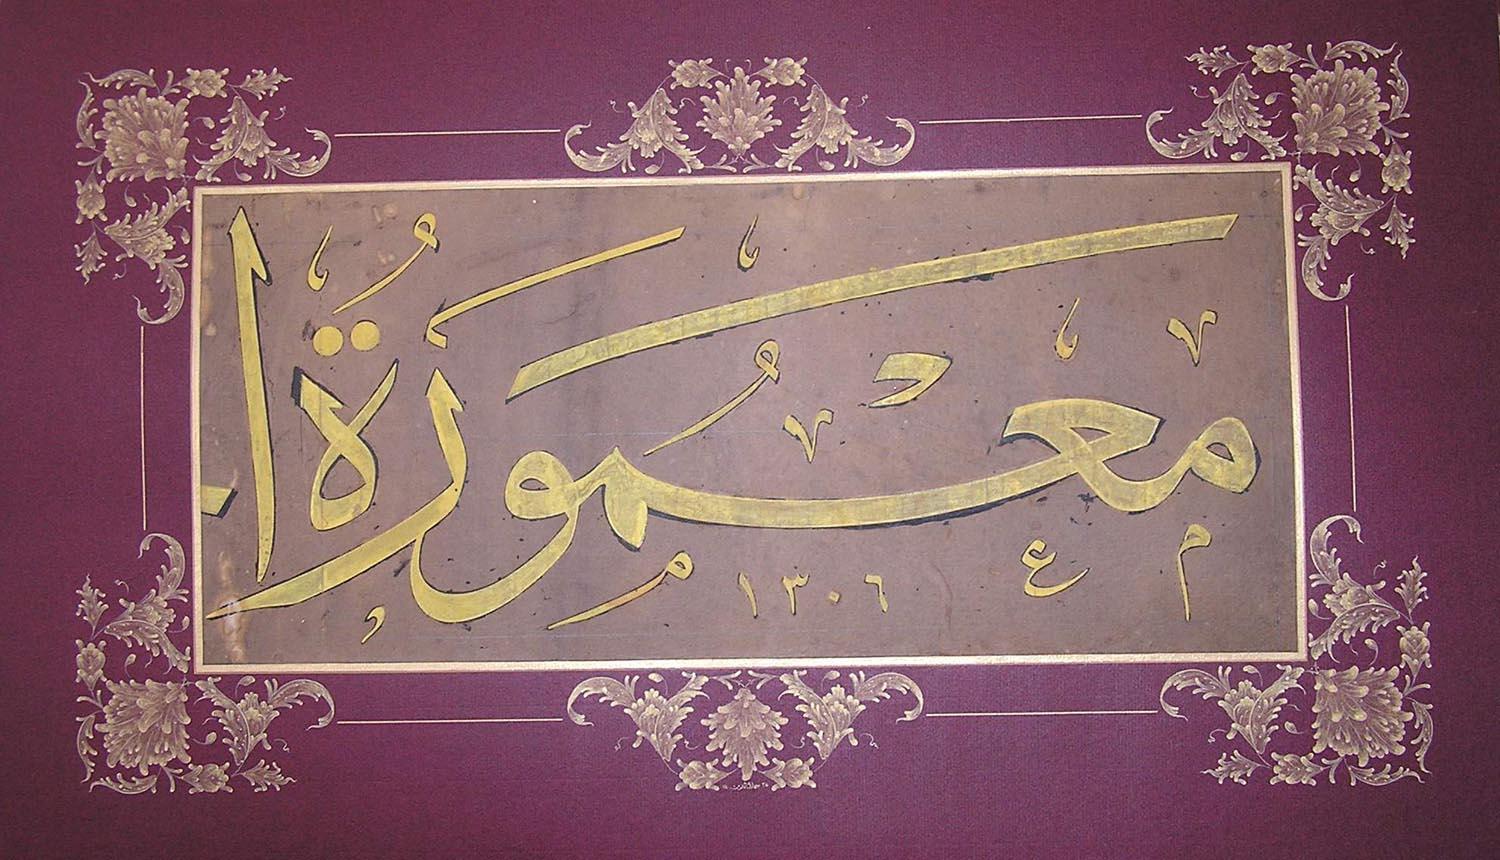 مَعْمُورَةُ ا
١٣٠٦